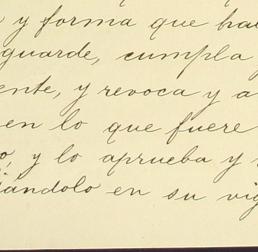 y forma que ha
guarde, cumpla
ente, y revoca y a
en lo que fuere
o, y lo aprueba y
ándolo en su vig